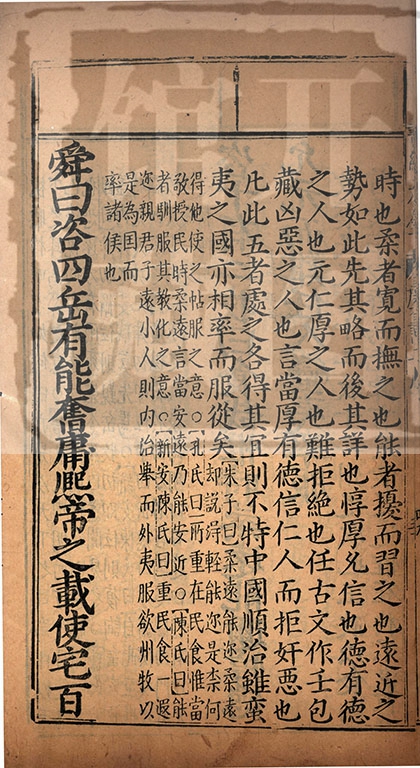 時也柔者寬而撫之也能者擾而習之也遠近之
勢如此先其略而後其詳也惇厚允信也德有德
之人也元仁厚之人也難拒絶也任古文作壬包
藏凶惡之人也言當厚有德信仁人而拒奸惡也
凡此五者處之各得其宜則不特中國順治雖蠻
夷之國亦相率而服從矣
朱子曰柔遠能迩柔遠
却說得輕能迩是柰何
得他使之帖服之意○孔氏曰所重在民食惟當
敬授民時柔遠言當安遠乃能安近○陳氏曰能
者馴服其教化之意○新安陳氏曰重民食一遐
迩親君子遠小人則内治舉而外夷服欲州牧以
是為囯而
率諸侯也
舜曰咨四岳有能奮庸熈帝之載使宅百